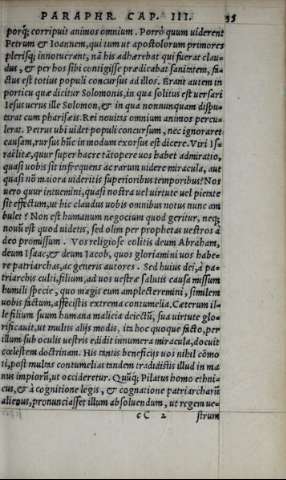 PARAPHR. CAP. III. 35
porq; corripuit animos omnium. Porrò quum uiderent
Petrum & Ioannem, qui tum ut apostolorum primores
plerisq; innotuerant, nã his adhærebat qui fuerat clau-
dus, & per hos sibi contigisse prædicabat sanitatem, fa-
ctus est totius populi concursus ad illos. Erant autem in
porticu quæ dicitur Solomonis, in qua solitus est uersari
Iesus uerus ille Solomon, & in qua nonnunquam dispu-
tarat cum pharisæis. Rei nouitas omnium animos percu-
lerat. Petrus ubi uidet populi concursum, nec ignoraret
causam, rursus hũc in modum exorsus est dicere. Viri Is-
raëlitæ, quur super hac re tãtopere uos habet admiratio,
quasi uobis sit infrequens ac rarum uidere miracula, aut
quasi nũ maiora uideritis superioribus temporibus? Nos
uero quur intuemini, quasi nostra uel uirtute uel pietate
sit effectum, ut hic claudus uobis omnibus notus nunc am
bulet? Non est humanum negocium quod geritur, neq;
nouũ est quod uidetis, sed olim per prophetas uestros à
deo promissum. Vos religiose colitis deum Abraham,
deum Isaac, & deum Iacob, quos gloriamini uos habe-
re patriarchas, ac generis autores. Sed huius dei, à pa-
triarchis culti, filium, ad uos uestræ salutis causa missum
humili specie, quo magis eum amplecteremini, similem
uobis factum, affecistis extrema contumelia. Cæterum il-
le filium suum humana malicia deiectũ, sua uirtute glo-
rificauit, ut multis alijs modis, ita hoc quoque facto, per
illum sub oculis uestris edidit innumera miracula, docuit
cœlestem doctrinam. His tantis beneficijs uos nihil cõmo
ti, post multas contumelias tandem tradidistis illud in ma
nus impiorũ, ut occideretur. Quũq; Pilatus homo ethni-
cus, & à cognitione legis, & cognatione patriarcharũ
alienus, pronunciasset illum absoluendum, ut regem ue-
cC 2 strum